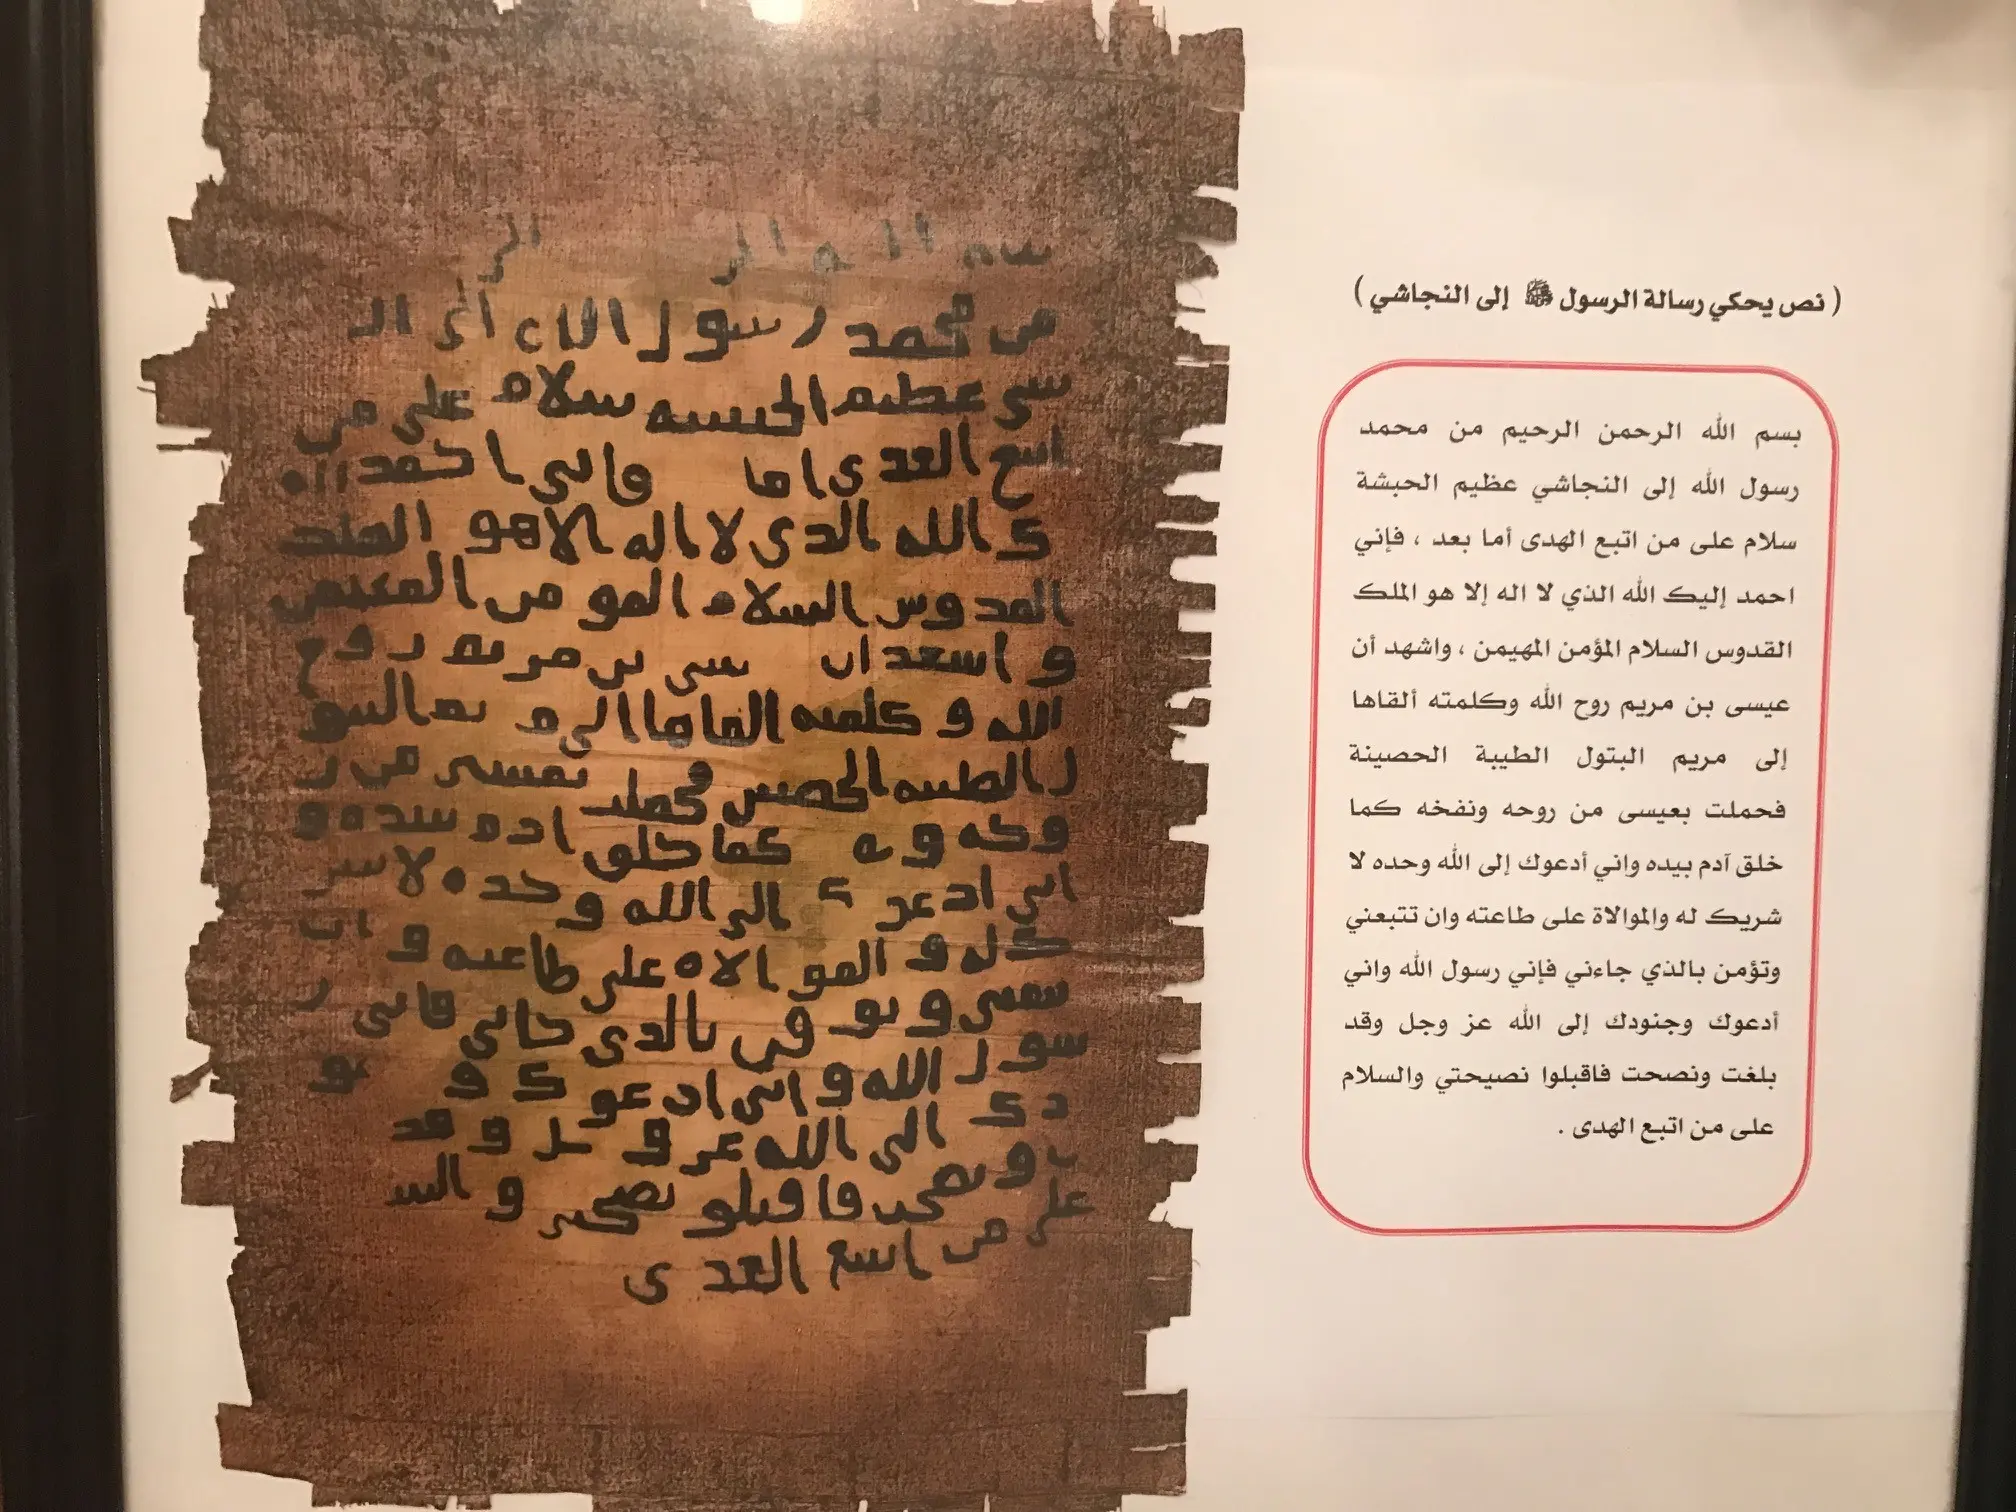 ( نص يحكي رسالة الرسول ﷺ إلى النجاشي )
بسم الله الرحمن الرحيم من محمد
رسول الله إلى النجاشي عظيم الحبشة
سلام على من اتبع الهدى أما بعد ، فإني
احمد إليك الله الذي لا اله إلا هو الملك
القدوس السلام المؤمن المهيمن ، واشهد أن
عيسى بن مريم روح الله وكلمته ألقاها
إلى مريم البتول الطيبة الحصينة
فحملت بعيسى من روحه ونفخه كما
خلق آدم بيده واني أدعوك إلى الله وحده لا
شريك له والموالاة على طاعته وان تتبعني
وتؤمن بالذي جاءني فإني رسول الله واني
أدعوك وجنودك إلى الله عز وجل وقد
بلغت ونصحت فاقبلوا نصيحتي والسلام
على من اتبع الهدى .
من محمد رسول الله الى ال
سى عظيم الحبسه سلام على من
اتبع الهدى اما فانى احمد ال
ك الله الذى لا اله الا هو الملك
القدوس السلام المومن المهيمن
واسهد ان سى بن مريم روح
الله وكلمته القاها الى مريم البتو
ل الطيبه الحصينه فحملت بعيسى من ر
وحه و كما خلق ادم بيده و
انى ادعوك الى الله وحده لا سر
ك له والموالاه على طاعته وان
تتبعنى وتو من بالذى جانى فانى ر
سول الله وانى ادعوك و نو
دك الى الله عز و ل وقد
ونصحت فاقبلو نصيحتى والس
على من اتبع الهدى